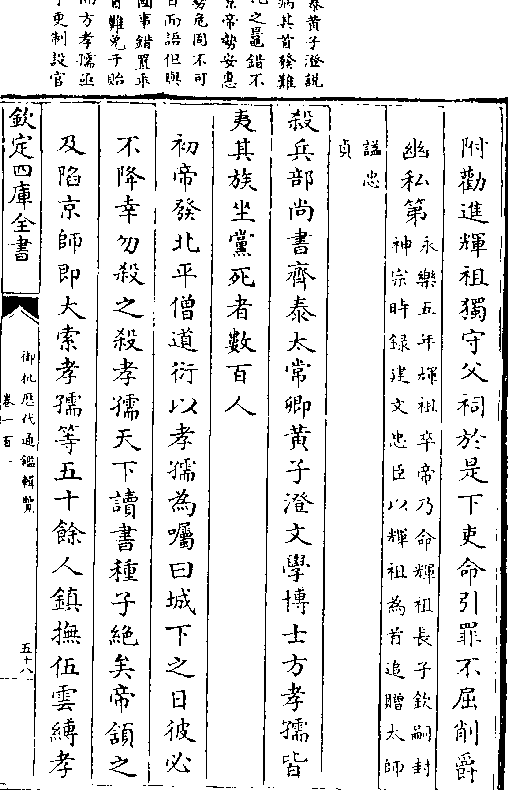 泰黃子澄説
病其首發難
之鼂錯不
京帝勢安惠
勢危固不可
日而語但與
國事錯置乖
自難免于貽
而方孝孺亟
于更制設官
附勸進輝祖獨守父祠於是下吏命引罪不屈削爵
幽私第
永樂五年輝祖卒帝乃命輝祖長子欽嗣封
神宗時録建文忠臣以輝祖為首追贈太師
諡忠
貞
殺兵部尚書齊泰太常卿黃子澄文學博士方孝孺皆
夷其族坐黨死者數百人
初帝發北平僧道衍以孝孺為囑曰城下之日彼必
不降幸勿殺之殺孝孺天下讀書種子絶矣帝頷之
及陷京師即大索孝孺等五十餘人鎮撫伍雲縛孝
欽定四庫全書
御批歷代通鑑輯覽
卷一百一
五十八